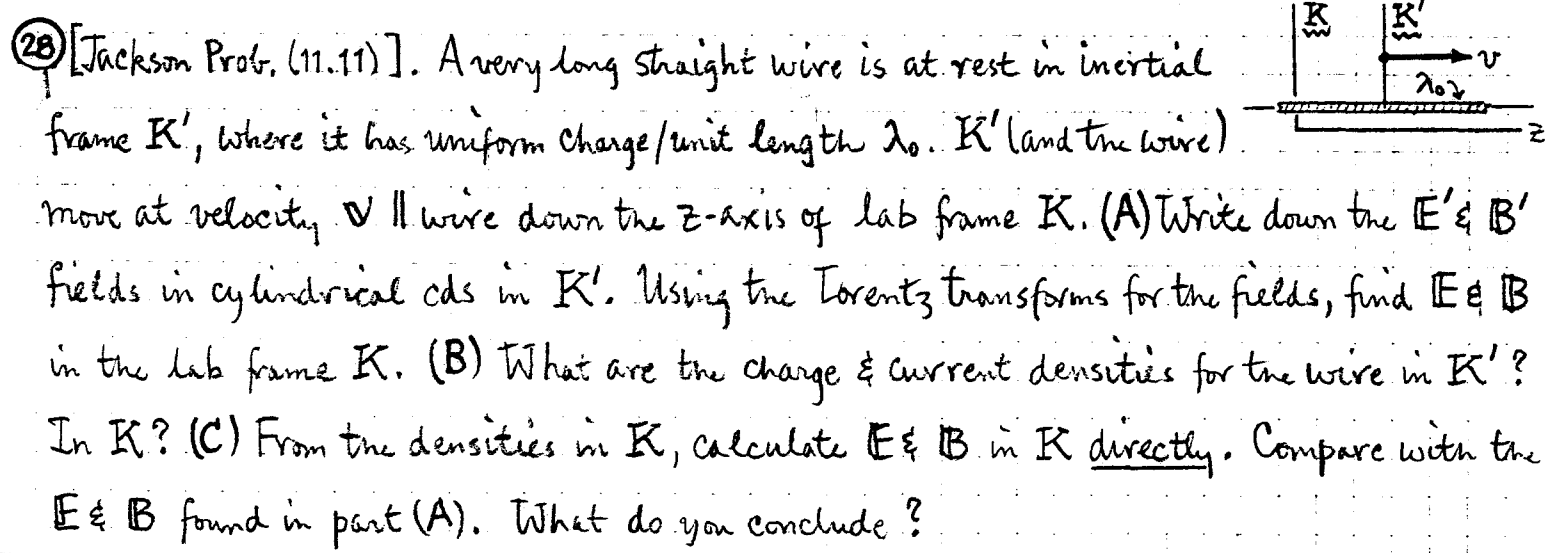 28 [Jackson Prob. (11.11)]. A very long straight wire is at rest in inertial
frame K', where it has uniform charge/unit length λ₀. K' (and the wire)
move at velocity v ∥ wire down the z-axis of lab frame K. (A) Write down the E' & B'
fields in cylindrical cds in K'. Using the Lorentz transforms for the fields, find E & B
in the lab frame K. (B) What are the charge & current densities for the wire in K'?
In K? (C) From the densities in K, calculate E & B in K directly. Compare with the
E & B found in part (A). What do you conclude?
K K'
v
λ₀
z